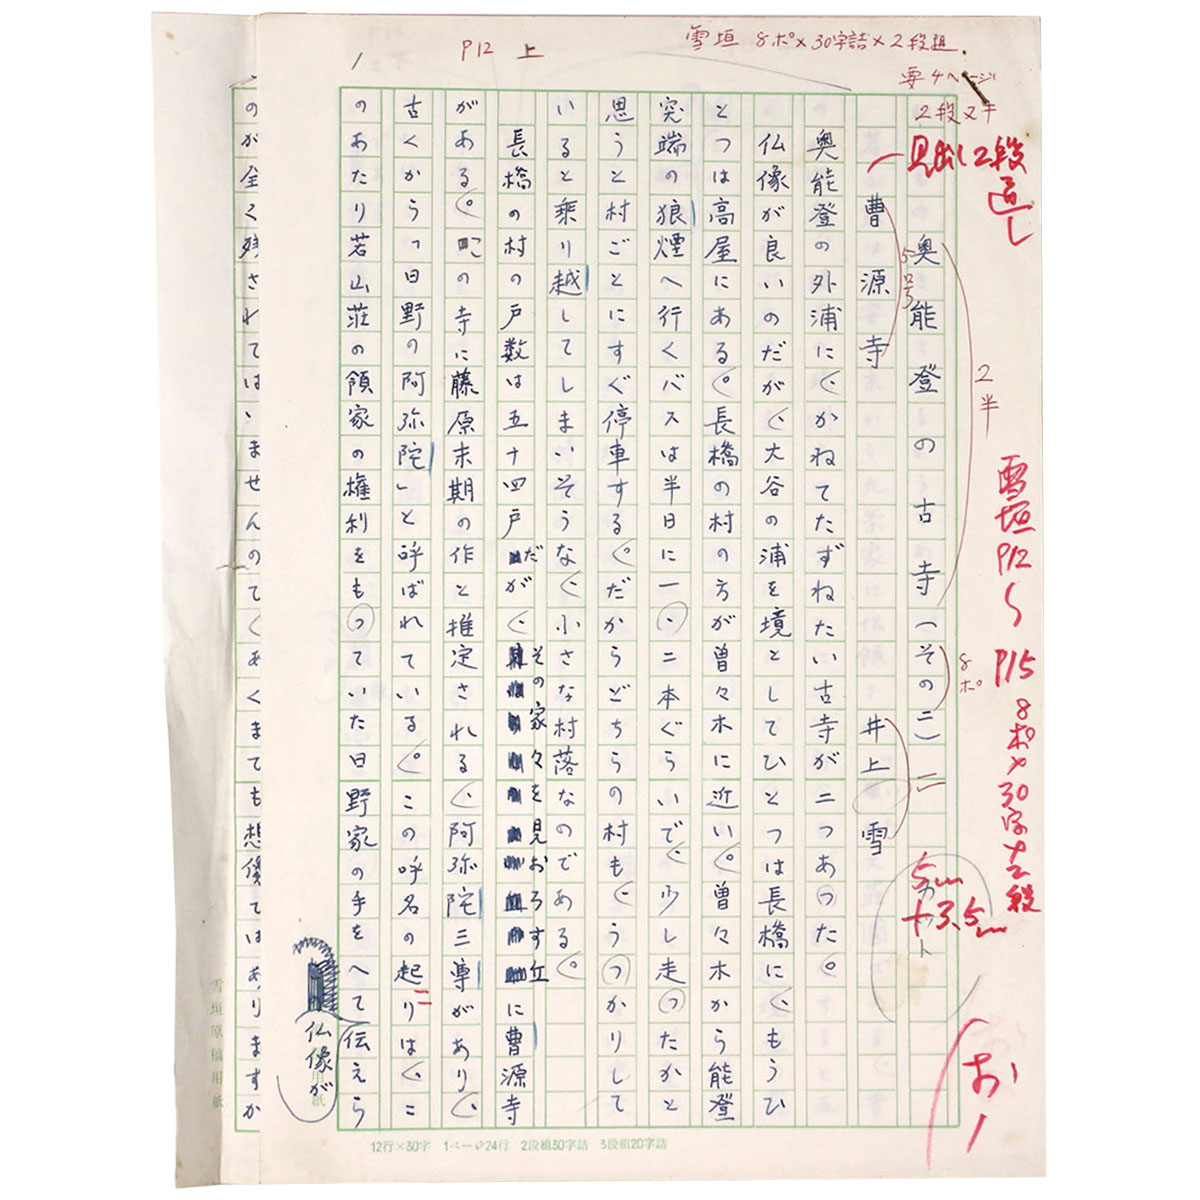 雪垣 8ポ×30字詰×2段組
要4ページ
2段ヌキ
P12 上
見出し2段
直し
奥能登の古寺(その二)
5号
2半
8ポ
曹源寺 井上 雪
カット
雪垣
P12〜P15
8ポ×30字十2段
5
+3.5
お1
奥能登の外浦に、かねてたずねたい古寺が二つあった。
仏像が良いのだが、大谷の浦を境としてひとつは長橋に、もうひ
とつは高屋にある。長橋の村の方が曽々木に近い。曽々木から能登
突端の狼煙へ行くバスは半日に一、二本ぐらいで、少し走ったかと
思うと村ごとにすぐ停車する。だからどちらの村も、うっかりして
いると乗り越してしまいそうな、小さな村落なのである。
長橋の村の戸数は五十四戸だが、その家々を見おろす丘に曹源寺
がある。この寺に藤原末期の作と推定される、阿弥陀三尊があり、
古くから「日野の阿弥陀」と呼ばれている。この呼名の起りは、こ
のあたり若山荘の領家の権利をもっていた日野家の手をへて伝えら
この仏像が
のが全く残されてはいませんのてくあくまても想像てはありますか
雪垣原稿用紙
用紙
12行×30字 1ページ24行 2段組30字詰 3段組20字詰